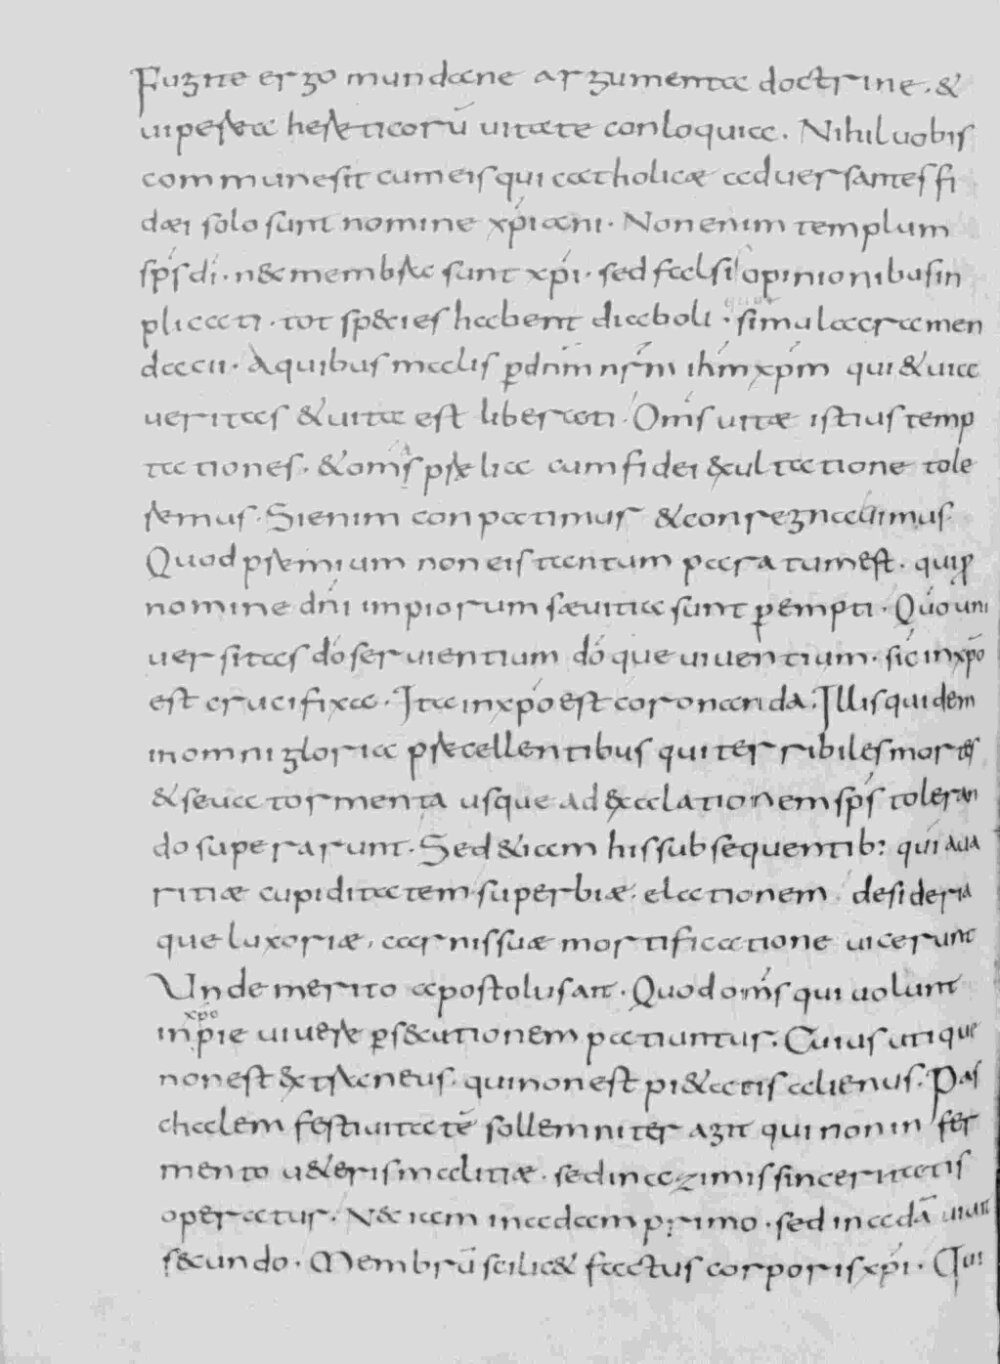 Fugite ergo mundane argumenta doctrine. &
uipesea heseticorū uitate conloquia. Nihil uobis
commune sit cum eis qui catholicæ aduersantes fi
dæi solo sunt nomine xp̄iani. Non enim templum
sp̄s dī. nec membra sunt xp̄i. sed falsi opinionibus in
plicati. tot species habent diaboli. simulacra men
dacii. A quibus malis p̄ dn̄m nr̄m ih̄m xp̄m qui & uia
ueritas & uita est liberati. Om̄s uitæ istius temp
tationes. & om̄s prelia cum fidei exultatione tole
remus. Si enim conpatimur & conregnauimus.
Quod premium non eis tantum paratum est. qui p̄
nomine dn̄i impiorum sæuitia sunt p̄empti. Quō uni
uersitas dō seruientium dōque uiuentium. sic in xp̄o
est crucifixa. Ita in xp̄o est coronanda. Illis quidem
in omni gloria precellentibus qui terribiles mortes
& seua tormenta usque ad exalationem sp̄s toleran
do superarunt. Sed etiam his subsequentib: qui aua
ritiæ cupiditatem. superbiæ. elationem. desideria
que luxoriæ, carnis suæ mortificatione uicerunt
Unde merito apostolus ait. Quod om̄s qui uolunt
xp̄o
in pie uiuere p̄secutionem patiuntur. Cuius utique
non est extraneus. qui non est pi&atis alienus. Pas
chalem festiuitatē sollemniter agit qui non in fer
mento u&eris malitiæ. sed in azimis sinceritatis
operatur. Nec iam in adam primo. sed in adā uiuit
secundo. Membrū scilic& factus corporis xp̄i. Qui